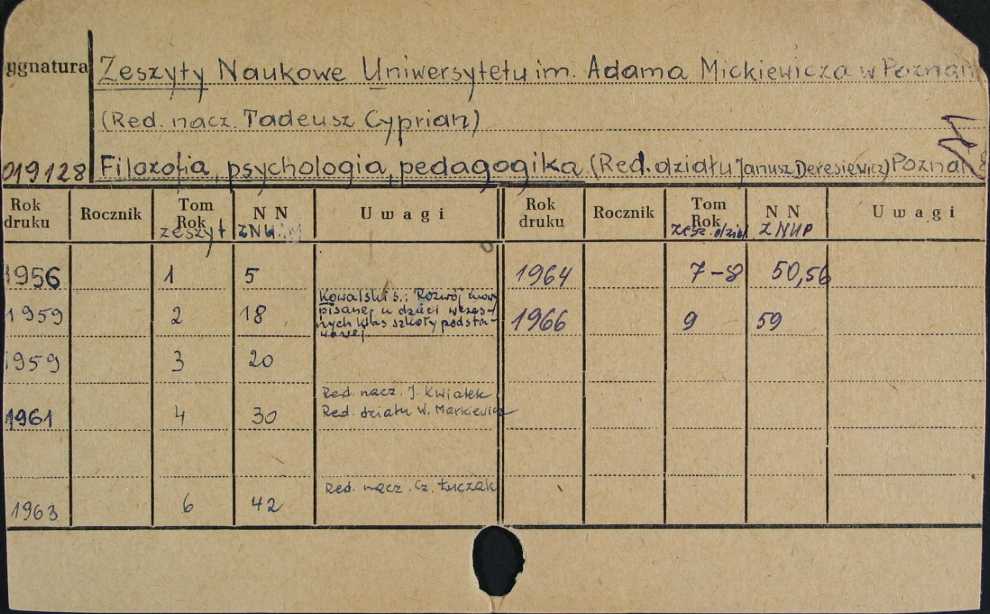 ygnatura Zeszyty Naukowe Uniwersytetu im. Adama Mickiewicza w Poznan
(Red. nacz. Tadeusz Cyprian)
019128 Filozofia, psychologia, pedagogika (Red. działu Janusz Deresiewicz) Poznań
Rok druku Rocznik Tom Rok zeszyt N N ZNU Uwagi Rok druku Rocznik Tom Rok Zesz. dział N N ZNUP Uwagi
1956 1 5 1964 7-8 50,56
1959 2 18 Kowalski S.: Rozwój mowy
pisanej u dzieci wczes-
nych klas szkoły podsta-
wowej
1966 9 59
1959 3 20
1961 4 30 Red. nacz. J. Kwiatek
Red. działu W. Markiewicz
1963 6 42 Red. nacz. Cz. Łuczak